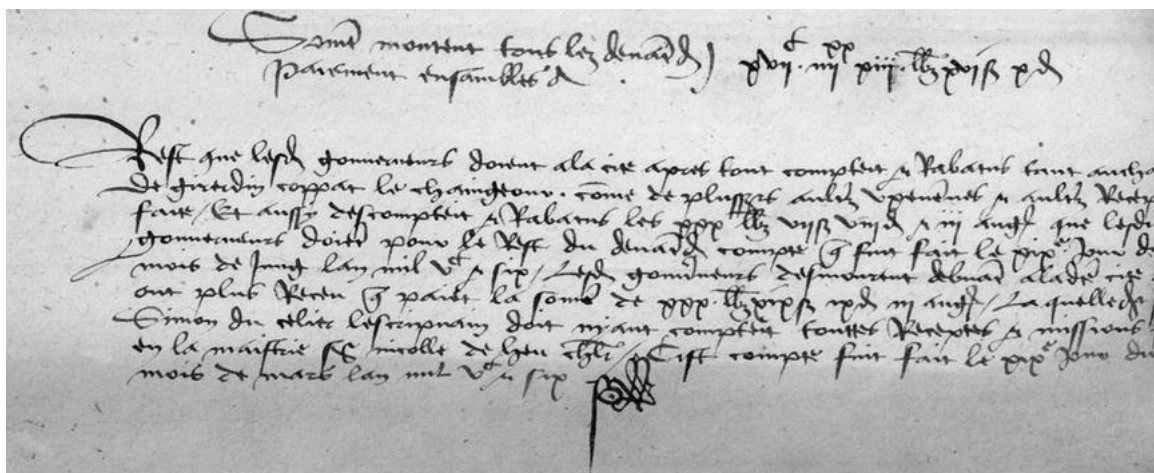 Some montent tous lez devand
Paiement ensambles a xvii c iiii xx xiii lb xvi s x d
Rest que lesd gouverneurs doient a la cite apres tout compteit et Rabatus tant
de girerdin coppat le changeour . come de plussrs aultz et aultz
faite / Et aussy descompteit et Rabatus les xxx lb vii s viii d et iii ang que
gouverneurs doient pour le Rest du devand compte q fuit fait le xix e Jour
mois de Jung lan mil v c et six / Lesd gouverneurs desmourent a lad cite
ont plus Receu q paiet la some de xxx lb xix s ix d iii ang / La quelle
Simon du celier lescripvain doit aiant compteit touttes Receptes et missions
en la maistrie sg nicolle de heu chlr / Cist compte fuit fait le xix e Jour du
mois de mars lan mil v c et six